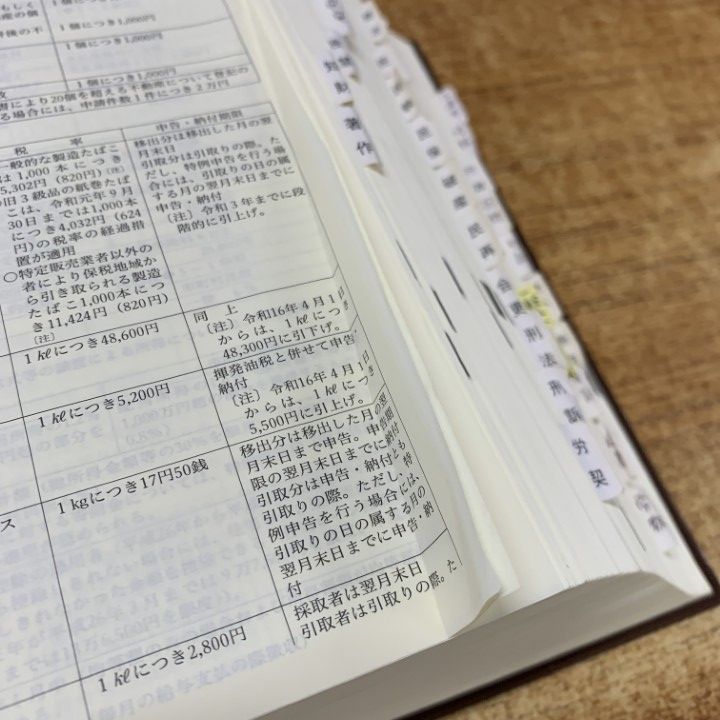 もしく
1個につき1,000円
1個につき1,000円
1個につき1,000円
書により20個を超える不動産について登記の
る場合には、申請件数1件につき2万円
税　率
申告・納付期限
一般的な製造たばこ
は1,000本につき
5,302円（820円）(注)
旧3級品の紙巻たば
こは、令和元年9月
30日までは1,000本
につき4,032円（624
円）の税率の経過措
置が適用
○特定販売業者以外の
者により保税地域か
ら引き取られる製造
たばこ1,000本につ
き11,424円（820円）
(注)
移出分は移出した月の翌
月末日
引取分は引取りの際。た
だし、特例申告を行う場
合には、引取りの日の属
する月の翌月末日までに
申告・納付
（注）令和3年までに段
階的に引上げ。
1㎘につき48,600円
同　上
（注）令和16年4月1日
からは、1㎘につき
48,300円に引下げ。
1㎘につき5,200円
揮発油税と併せて申告・
納付
（注）令和16年4月1日
からは、1㎘につき
5,500円に引上げ。
ス
1kgにつき17円50銭
移出分は移出した月の翌
月末日まで申告。申告期
限の翌月末日までに納付
引取分は申告・納付とも
引取りの際。ただし、特
例申告を行う場合には、
引取りの日の属する月の
翌月末日までに申告・納
付
1㎘につき2,800円
採取者は翌月末日
引取者は引取りの際。た
知財
著作
健康
民再
会更
刑法
刑訴
労契